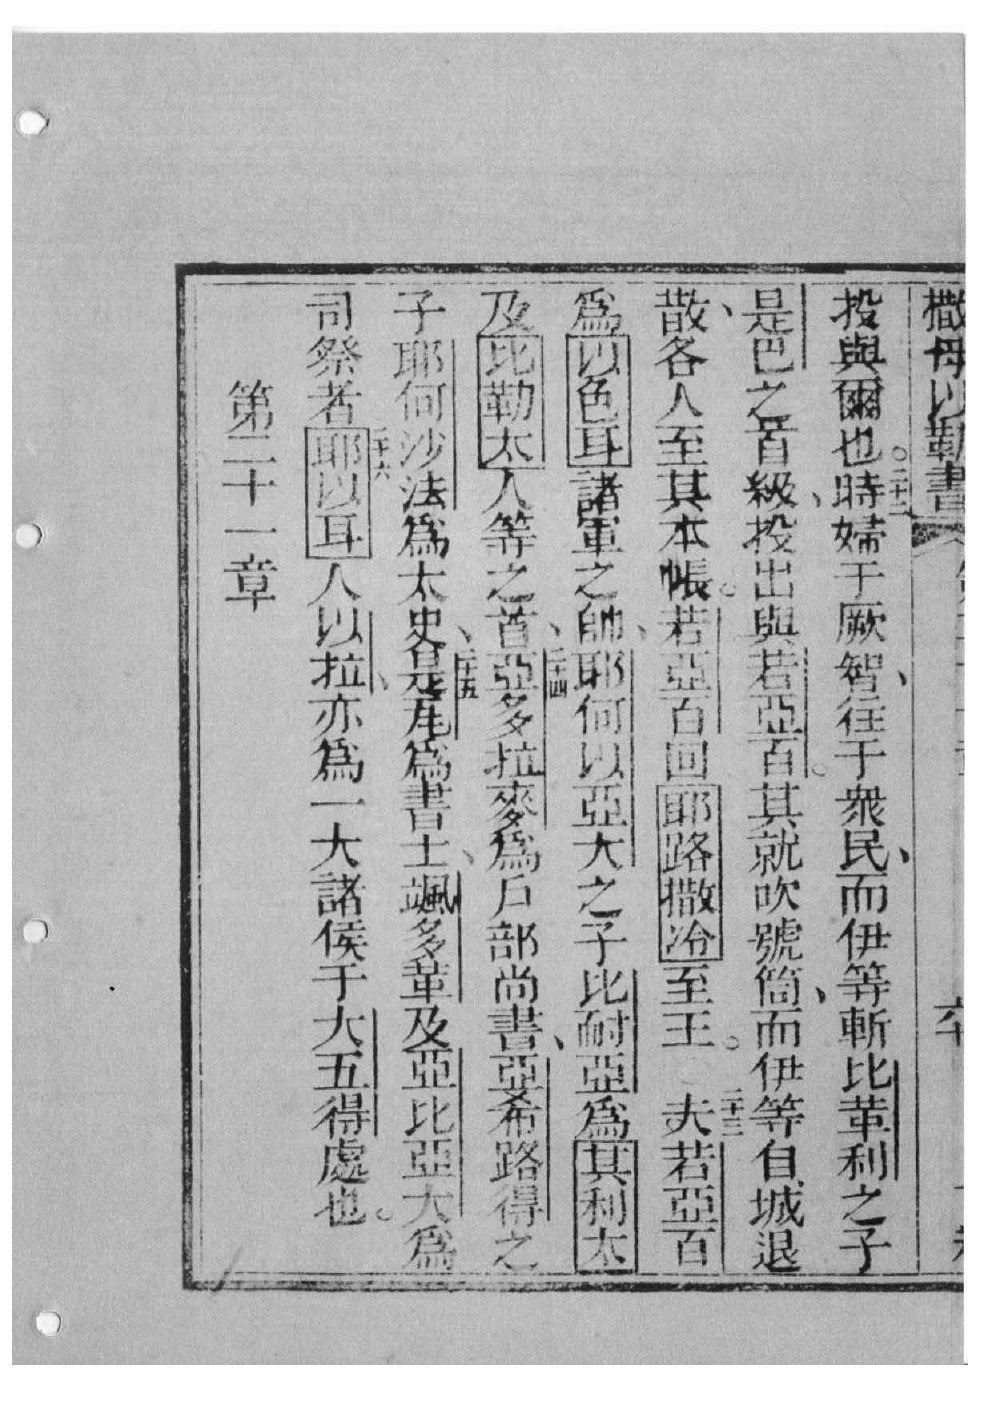 撒母以勒書
投與爾也。二十二時婦于厥智、往于衆民、而伊等斬比革利之子
是巴之首級、投出與若亞百。其就吹號筒、而伊等自城退
散、各人至其本帳。若亞百回耶路撒冷至王。○二十三夫若亞百
爲以色耳諸軍之帥、耶何以亞大之子比耐亞爲其利太
及比勒太人等之首、二十四亞多拉麥爲戶部尚書、亞希路得之
子耶何沙法爲太史、二十五是瓦爲書士、颯多革及亞比亞大爲
司祭者二十六耶以耳人以拉、亦爲一大諸侯于大五得處也。
第二十一章